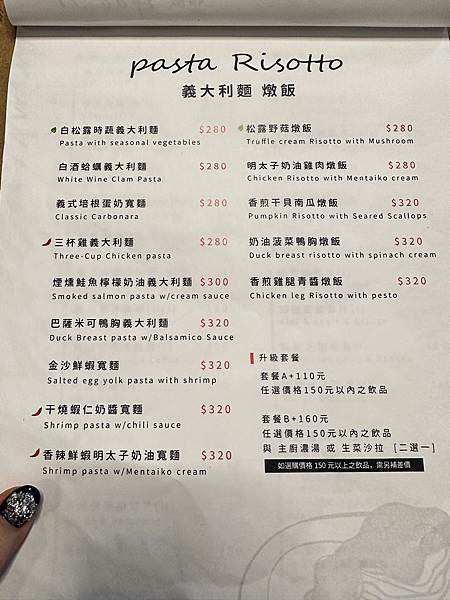 pasta Risotto
義大利麵 燉飯
白松露時蔬義大利麵 $280
Pasta with seasonal vegetables
白酒蛤蠣義大利麵 $280
White Wine Clam Pasta
義式培根蛋奶寬麵 $280
Classic Carbonara
三杯雞義大利麵 $280
Three-Cup Chicken pasta
煙燻鮭魚檸檬奶油義大利麵 $300
Smoked salmon pasta w/cream sauce
巴薩米可鴨胸義大利麵 $320
Duck Breast pasta w/Balsamico Sauce
金沙鮮蝦寬麵 $320
Salted egg yolk pasta with shrimp
干燒蝦仁奶醬寬麵 $320
Shrimp pasta w/chili sauce
香辣鮮蝦明太子奶油寬麵 $320
Shrimp pasta w/Mentaiko cream
松露野菇燉飯 $280
Truffle cream Risotto with Mushroom
明太子奶油雞肉燉飯 $280
Chicken Risotto with Mentaiko cream
香煎干貝南瓜燉飯 $320
Pumpkin Risotto with Seared Scallops
奶油菠菜鴨胸燉飯 $320
Duck breast risotto with spinach cream
香煎雞腿青醬燉飯 $320
Chicken leg Risotto with pesto
升級套餐
套餐A+110元
任選價格150元以內之飲品
套餐B+160元
任選價格150元以內之飲品
與 主廚濃湯 或 生菜沙拉 [二選一]
如選購價格 150 元以上之飲品，需另補差價